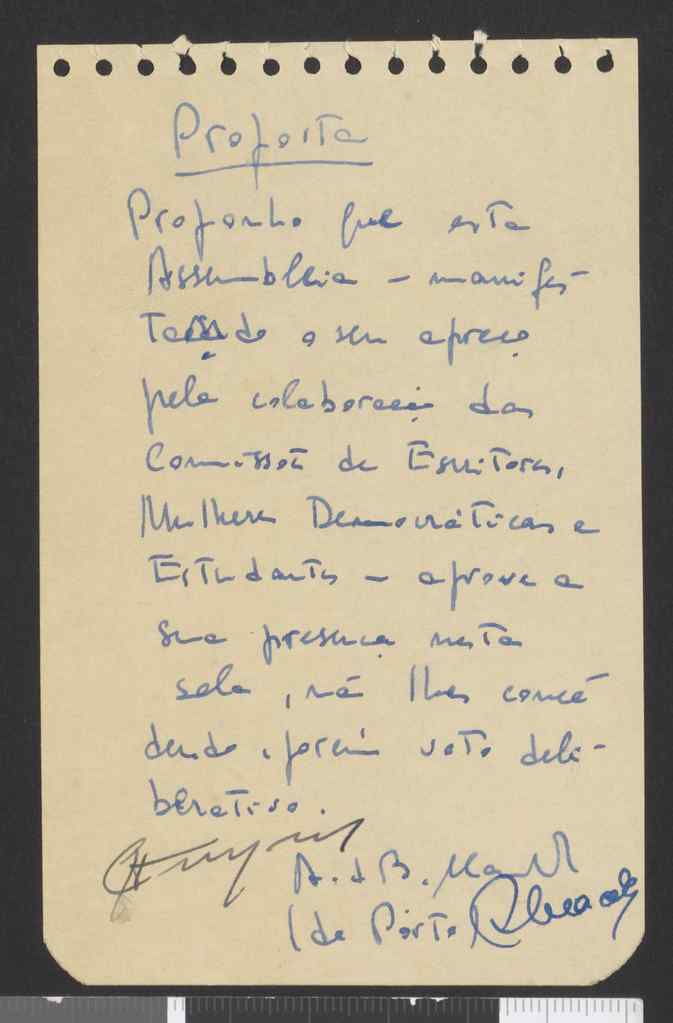 Proposta
Proponho que esta
Assembleia - manifes-
tando o seu apreço
pela colaboração das
Comissões de Escritores,
Mulheres Democráticas e
Estudantes - aprove a
sua presença nesta
sala, não lhes conce
dendo, porém voto deli-
berativo.
A. d B.
(do Porto